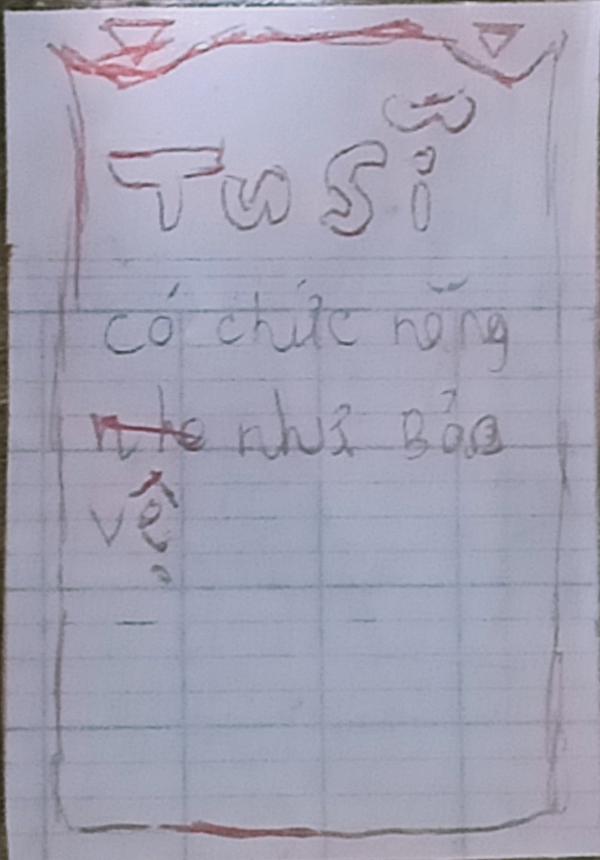 Tu Sĩ
có chức năng
nho như Bảo
vệ